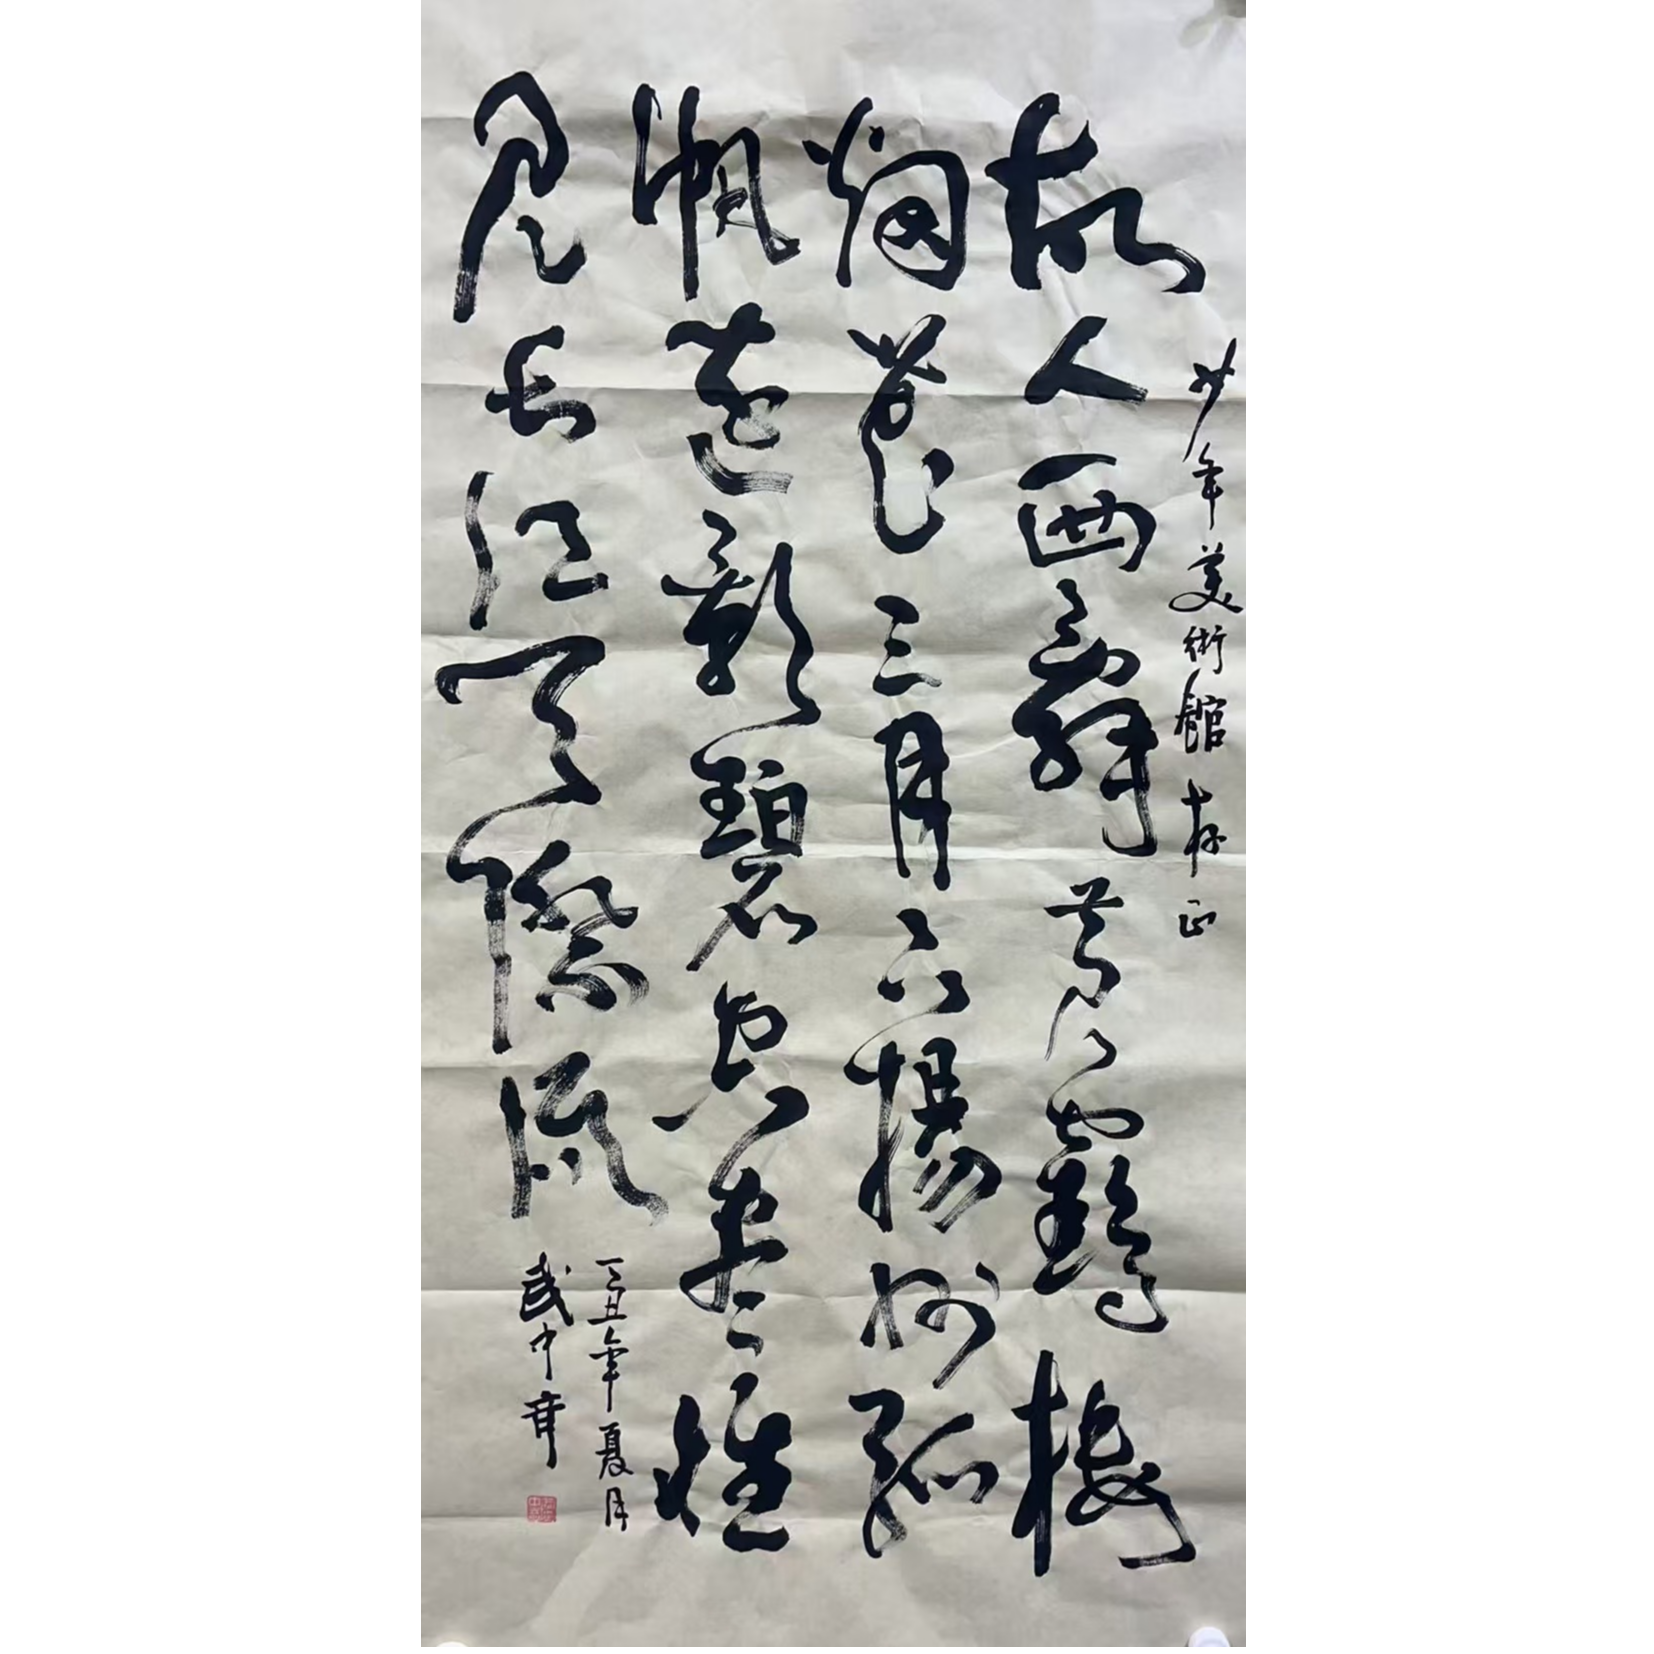 少年美術館存正
故人西辭黃鶴樓
烟花三月下揚州孤
帆遠影碧空盡惟
見長江天際流
丁丑年夏月
武中奇